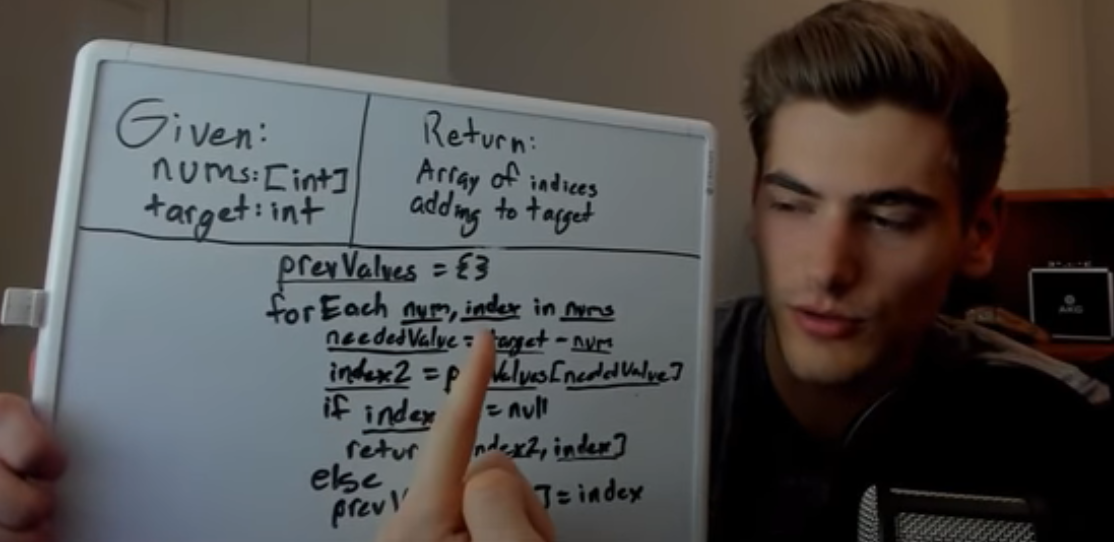 Given:
nums: [int]
target: int
Return:
Array of indices
adding to target
prevValues = {}
forEach num, index in nums
neededValue = target - num
index2 = prevValues[neededValue]
if index = null
retur ndex2, index]
else
prevV ] = index
AKG